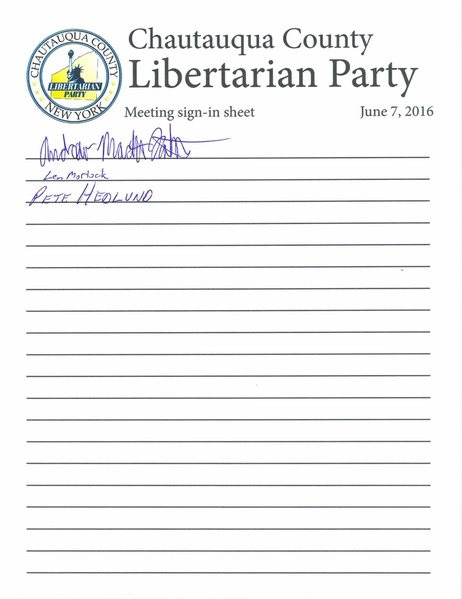 CHAUTAUQUA COUNTY
LIBERTARIAN
PARTY
NEW YORK
Chautauqua County
Libertarian Party
Meeting sign-in sheet June 7, 2016
Andrew
Len Morlock
PETE HEDLUND